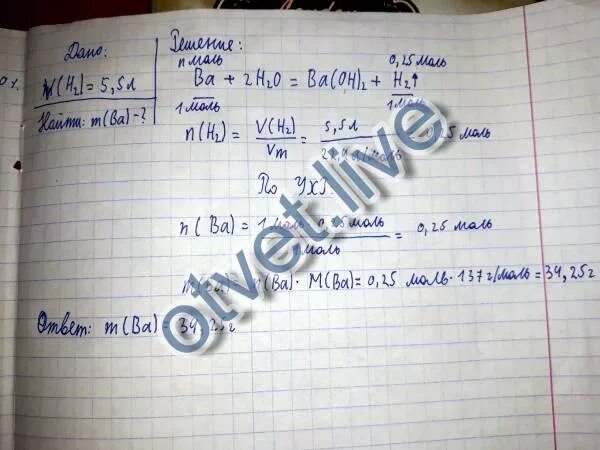 Дано:
V(H₂) = 5,5л
Найти: m(Ba)-?
Решение:
n моль 0,25 моль
Ba + 2H₂O = Ba(OH)₂ + H₂↑
1 моль 1 моль
n(H₂) = V(H₂)/Vm = 5,5л/ л/моль 0,25 моль
По УХР:
n(Ba) = 1 моль· 0,25 моль/1 моль = 0,25 моль
m(Ba) n(Ba)· M(Ba)= 0,25 моль· 137 г/моль = 34,25г
Ответ: m(Ba) = 34,25г
otvet.live